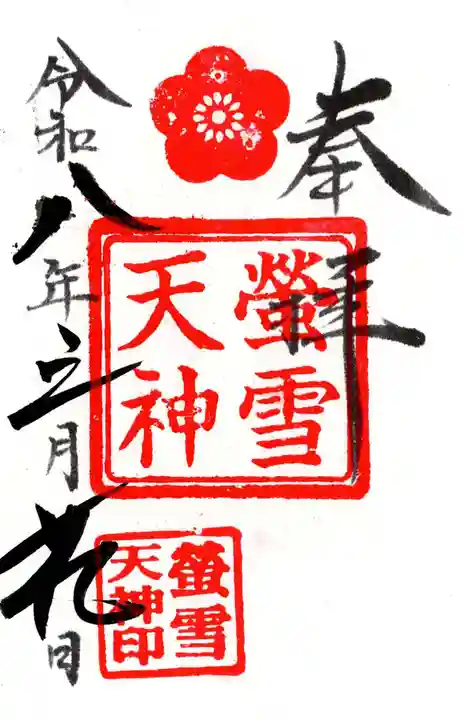 奉拝
螢雪
天神
螢雪
天神印
令和八年 月 日